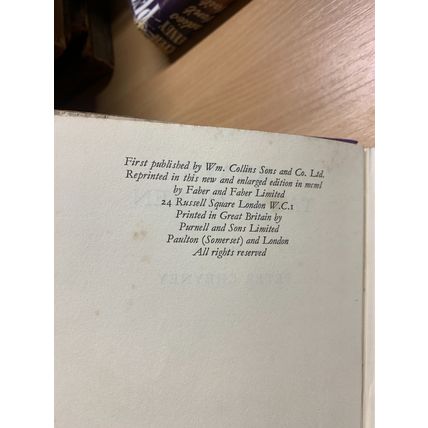 First published by Wm. Collins Sons and Co. Ltd.
Reprinted in this new and enlarged edition in mcml
by Faber and Faber Limited
24 Russell Square London W.C.1
Printed in Great Britain by
Purnell and Sons Limited
Paulton (Somerset) and London
All rights reserved
PETER CHEYNEY